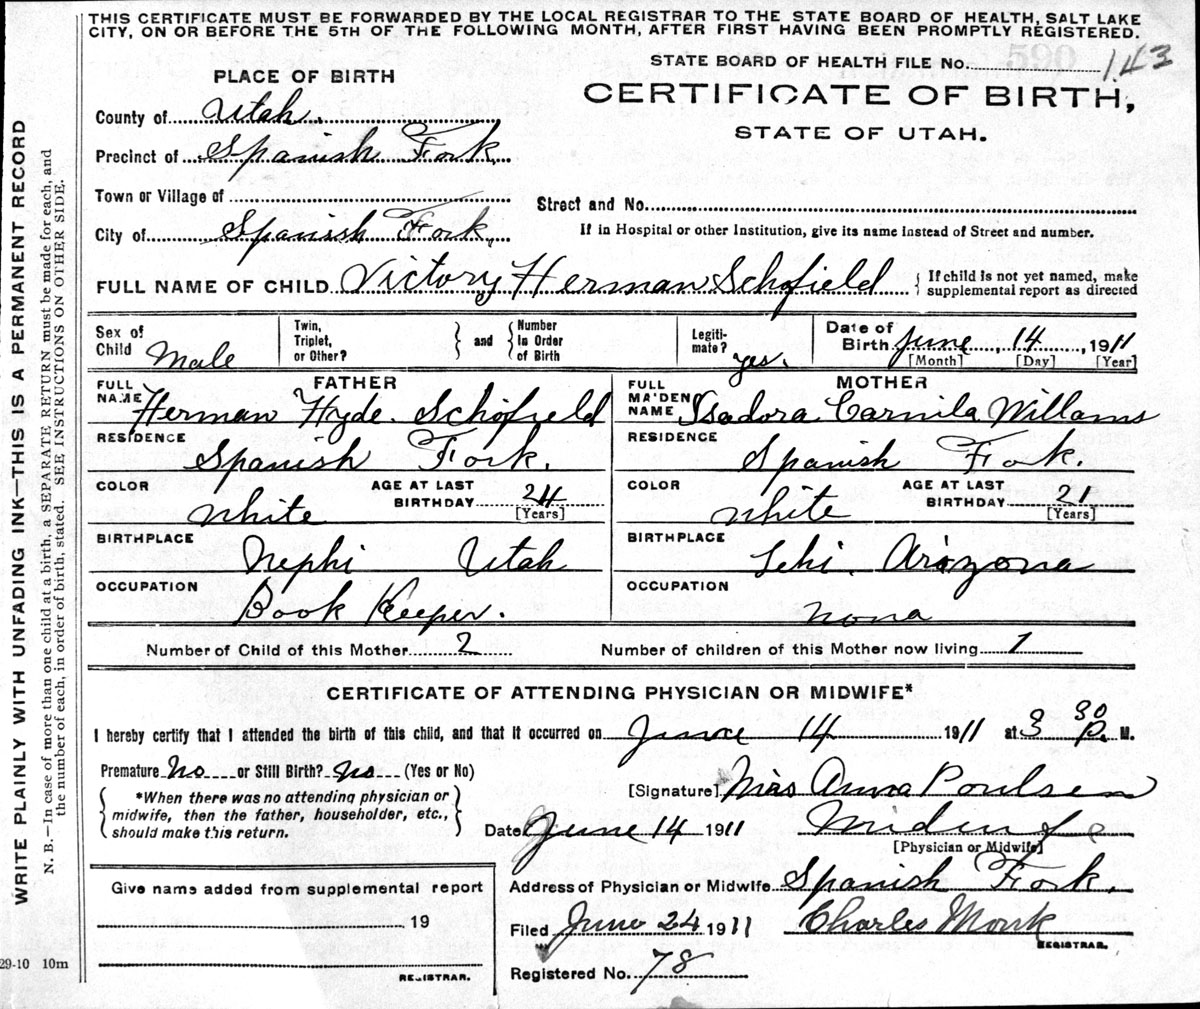 THIS CERTIFICATE MUST BE FORWARDED BY THE LOCAL REGISTRAR TO THE STATE BOARD OF HEALTH, SALT LAKE
CITY, ON OR BEFORE THE 5TH OF THE FOLLOWING MONTH, AFTER FIRST HAVING BEEN PROMPTLY REGISTERED.
STATE BOARD OF HEALTH FILE No. 143
PLACE OF BIRTH
CERTIFICATE OF BIRTH,
STATE OF UTAH.
County of Utah.
Precinct of Spanish Fork
Town or Village of
Street and No.
City of Spanish Fork.
If in Hospital or other Institution, give its name instead of Street and number.
FULL NAME OF CHILD Victory Herman Schofield { If child is not yet named, make
supplemental report as directed
Sex of Child Male
Twin, Triplet, or Other? } and { Number In Order of Birth
Legiti-mate? yes.
Date of Birth June, 14, 1911
[Month] [Day] [Year]
FATHER
FULL NAME Herman Hyde. Schofield
MOTHER
FULL MAIDEN NAME Isadora Carnila Willams
RESIDENCE Spanish Fork.
RESIDENCE Spanish Fork.
COLOR White AGE AT LAST BIRTHDAY 24 [Years]
COLOR White AGE AT LAST BIRTHDAY 21 [Years]
BIRTHPLACE Nephi Utah
BIRTHPLACE Lehi. Arizona
OCCUPATION Book Keeper.
OCCUPATION nona
Number of Child of this Mother 2
Number of children of this Mother now living 1
CERTIFICATE OF ATTENDING PHYSICIAN OR MIDWIFE*
I hereby certify that I attended the birth of this child, and that it occurred on June 14 1911 at 3 30 P. M.
Premature No or Still Birth? No (Yes or No)
{ *When there was no attending physician or midwife, then the father, householder, etc., should make this return. }
[Signature] Mrs Anna Poulsen
Date June 14 1911 Midwife
[Physician or Midwife]
Give name added from supplemental report
19
REGISTRAR.
Address of Physician or Midwife Spanish Fork.
Filed June 24 1911 Charles Monk
REGISTRAR.
Registered No. 78
29-10 10m
WRITE PLAINLY WITH UNFADING INK—THIS IS A PERMANENT RECORD
N. B.—In case of more than one child at a birth, a SEPARATE RETURN must be made for each, and
the number of each, in order of birth, stated. SEE INSTRUCTIONS ON OTHER SIDE.